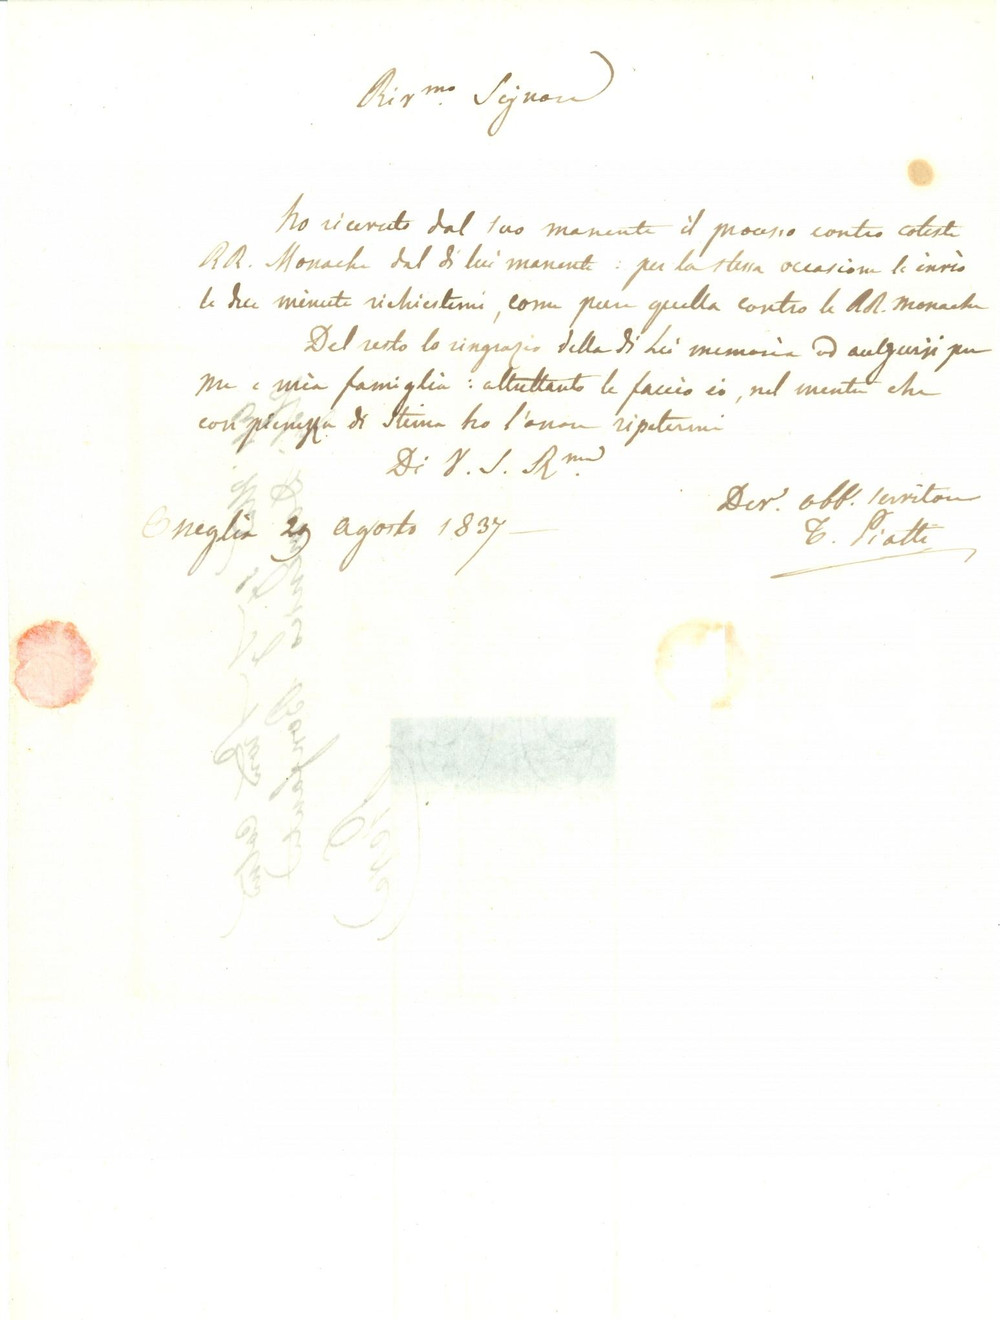 Riv.mo Signore
ho ricevuto dal suo manente il processo contro coteste
RR. Monache dal di lui manente : per la stessa occasione le invio
le due minute richiestemi, come pure quella contro le RR. monache
Del resto lo ringrazio della di Lei memoria ed augurii per
me e mia famiglia : altuttanto le faccio io, nel mentre che
con pienezza di stima ho l'onore ripetermi
Di V. S. R.ma
Dev.o obb. servitore
Oneglia 29 agosto 1837 T. Piatti